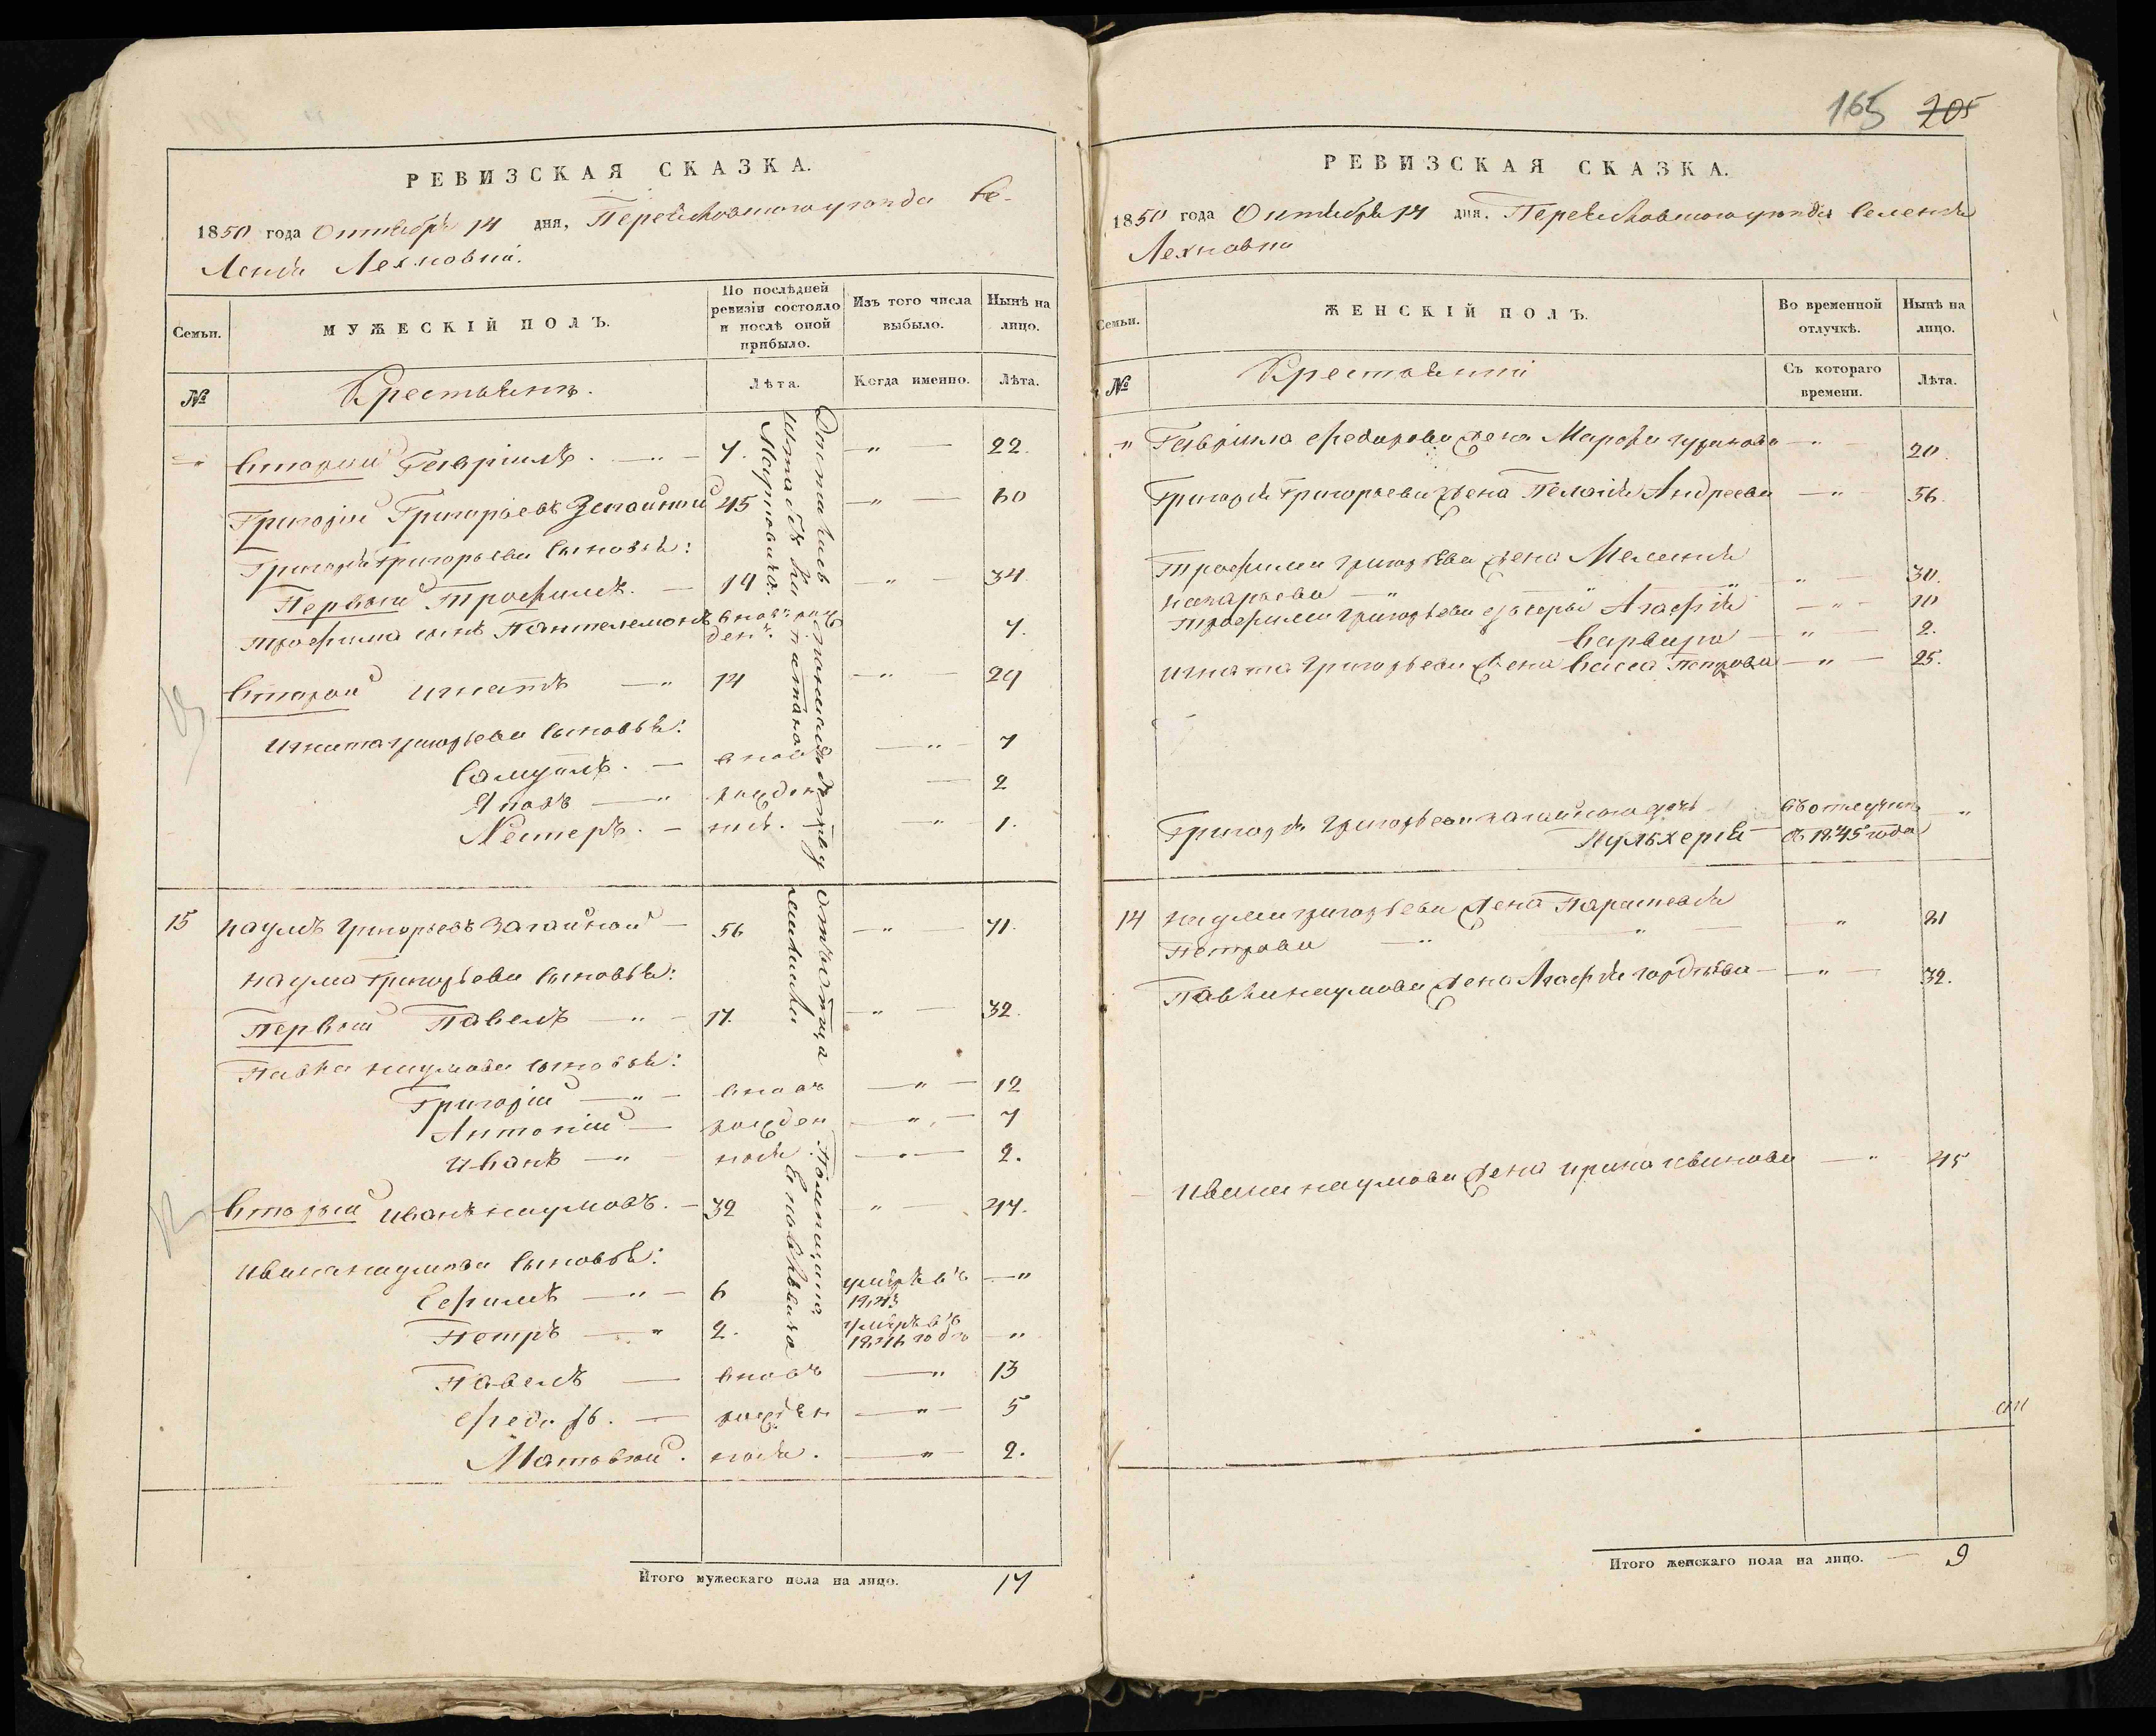 РЕВИЗСКАЯ СКАЗКА.
1850 года Октября 14 дня, Переяславского уезда Се-
ления Лехновки.
Семьи. МУЖЕСКІЙ ПОЛЪ. По послѣдней ревизіи состояло и послѣ оной прибыло. Изъ того числа выбыло. Нынѣ на лицо.
№ Крестьянъ. Лѣта. Когда именно. Лѣта.
" Вторый Гавріилъ. — " — 7. — " — 22.
Григорій Григорьевъ 45 — " — 60
Григорія Григорьева сыновья:
Первый Трофимъ. — 19 — " — 34
Трофима сынъ Пантелемонъ вновь рожден. 7.
Вторый Игнатъ — " 14 — " — 29
Игната Григорьева сыновья:
Самуилъ. — вновь — " — 7
Яковъ — " рожден — 2
Несторъ. — ные. — " — 1.
15 Наумъ Григорьевъ Загайной — 56 — " — 71.
Наума Григорьева сыновья:
Первый Павелъ — " — 17. — " — 32.
Павла Наумова сыновья:
Григорій — " — вновь — " — 12
Антоній — рожден — " — 7
Иванъ — " — ные. — " — 2.
Вторый Иванъ Наумовъ. — 32 " — 47.
Ивана Наумова сыновья:
Ефимъ — " — 6 умеръ въ 1843 — "
Петръ — " 2. умеръ въ 1846 годъ — "
Павелъ — вновь — " 13
Федоръ. — рожден — " — 5
Матвѣй. ные. — " — 2.
Итого мужескаго пола на лицо. 17
165 205
РЕВИЗСКАЯ СКАЗКА.
1850 года Октября 14 дня. Переяславского уезда Селения
Лехновки
Семьи. ЖЕНСКІЙ ПОЛЪ. Во временной отлучкѣ. Нынѣ на лицо.
№ Крестьянки Съ котораго времени. Лѣта.
" Гавріила Федорова жена Марфа — " — 20.
Григорія Григорьева жена Пелагія Андреева — " 56.
Трофима Григорьева жена Меланія
Назарьева — " " — 30.
Трофима Григорьева дочери Агафія — " — 10
Варвара — " — 2.
Игната Григорьева жена Васса Петрова — " — 25.
Григорія Григорьева Загайного дочь въ отлучке "
Пульхерія — съ 1845 года
14 Наума Григорьева жена Параскевія
Петрова — " — " — " 81
Павла Наумова жена Агафія Гордѣева — " — 32.
Ивана Наумова жена Ирина Иванова — " 45
Итого женскаго пола на лицо. — 9